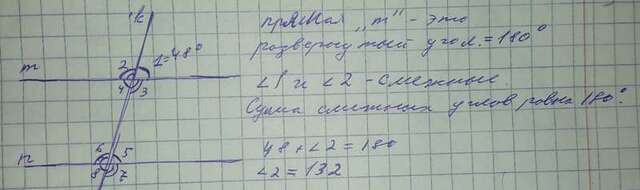 k
прямая "m" - это
развернутый угол. = 180°
2 1=48°
m
4 3
∠1 и ∠2 - смежные
Сумма смежных углов равна 180°.
48 + ∠2 = 180
∠2 = 132
6 5
n
8 7